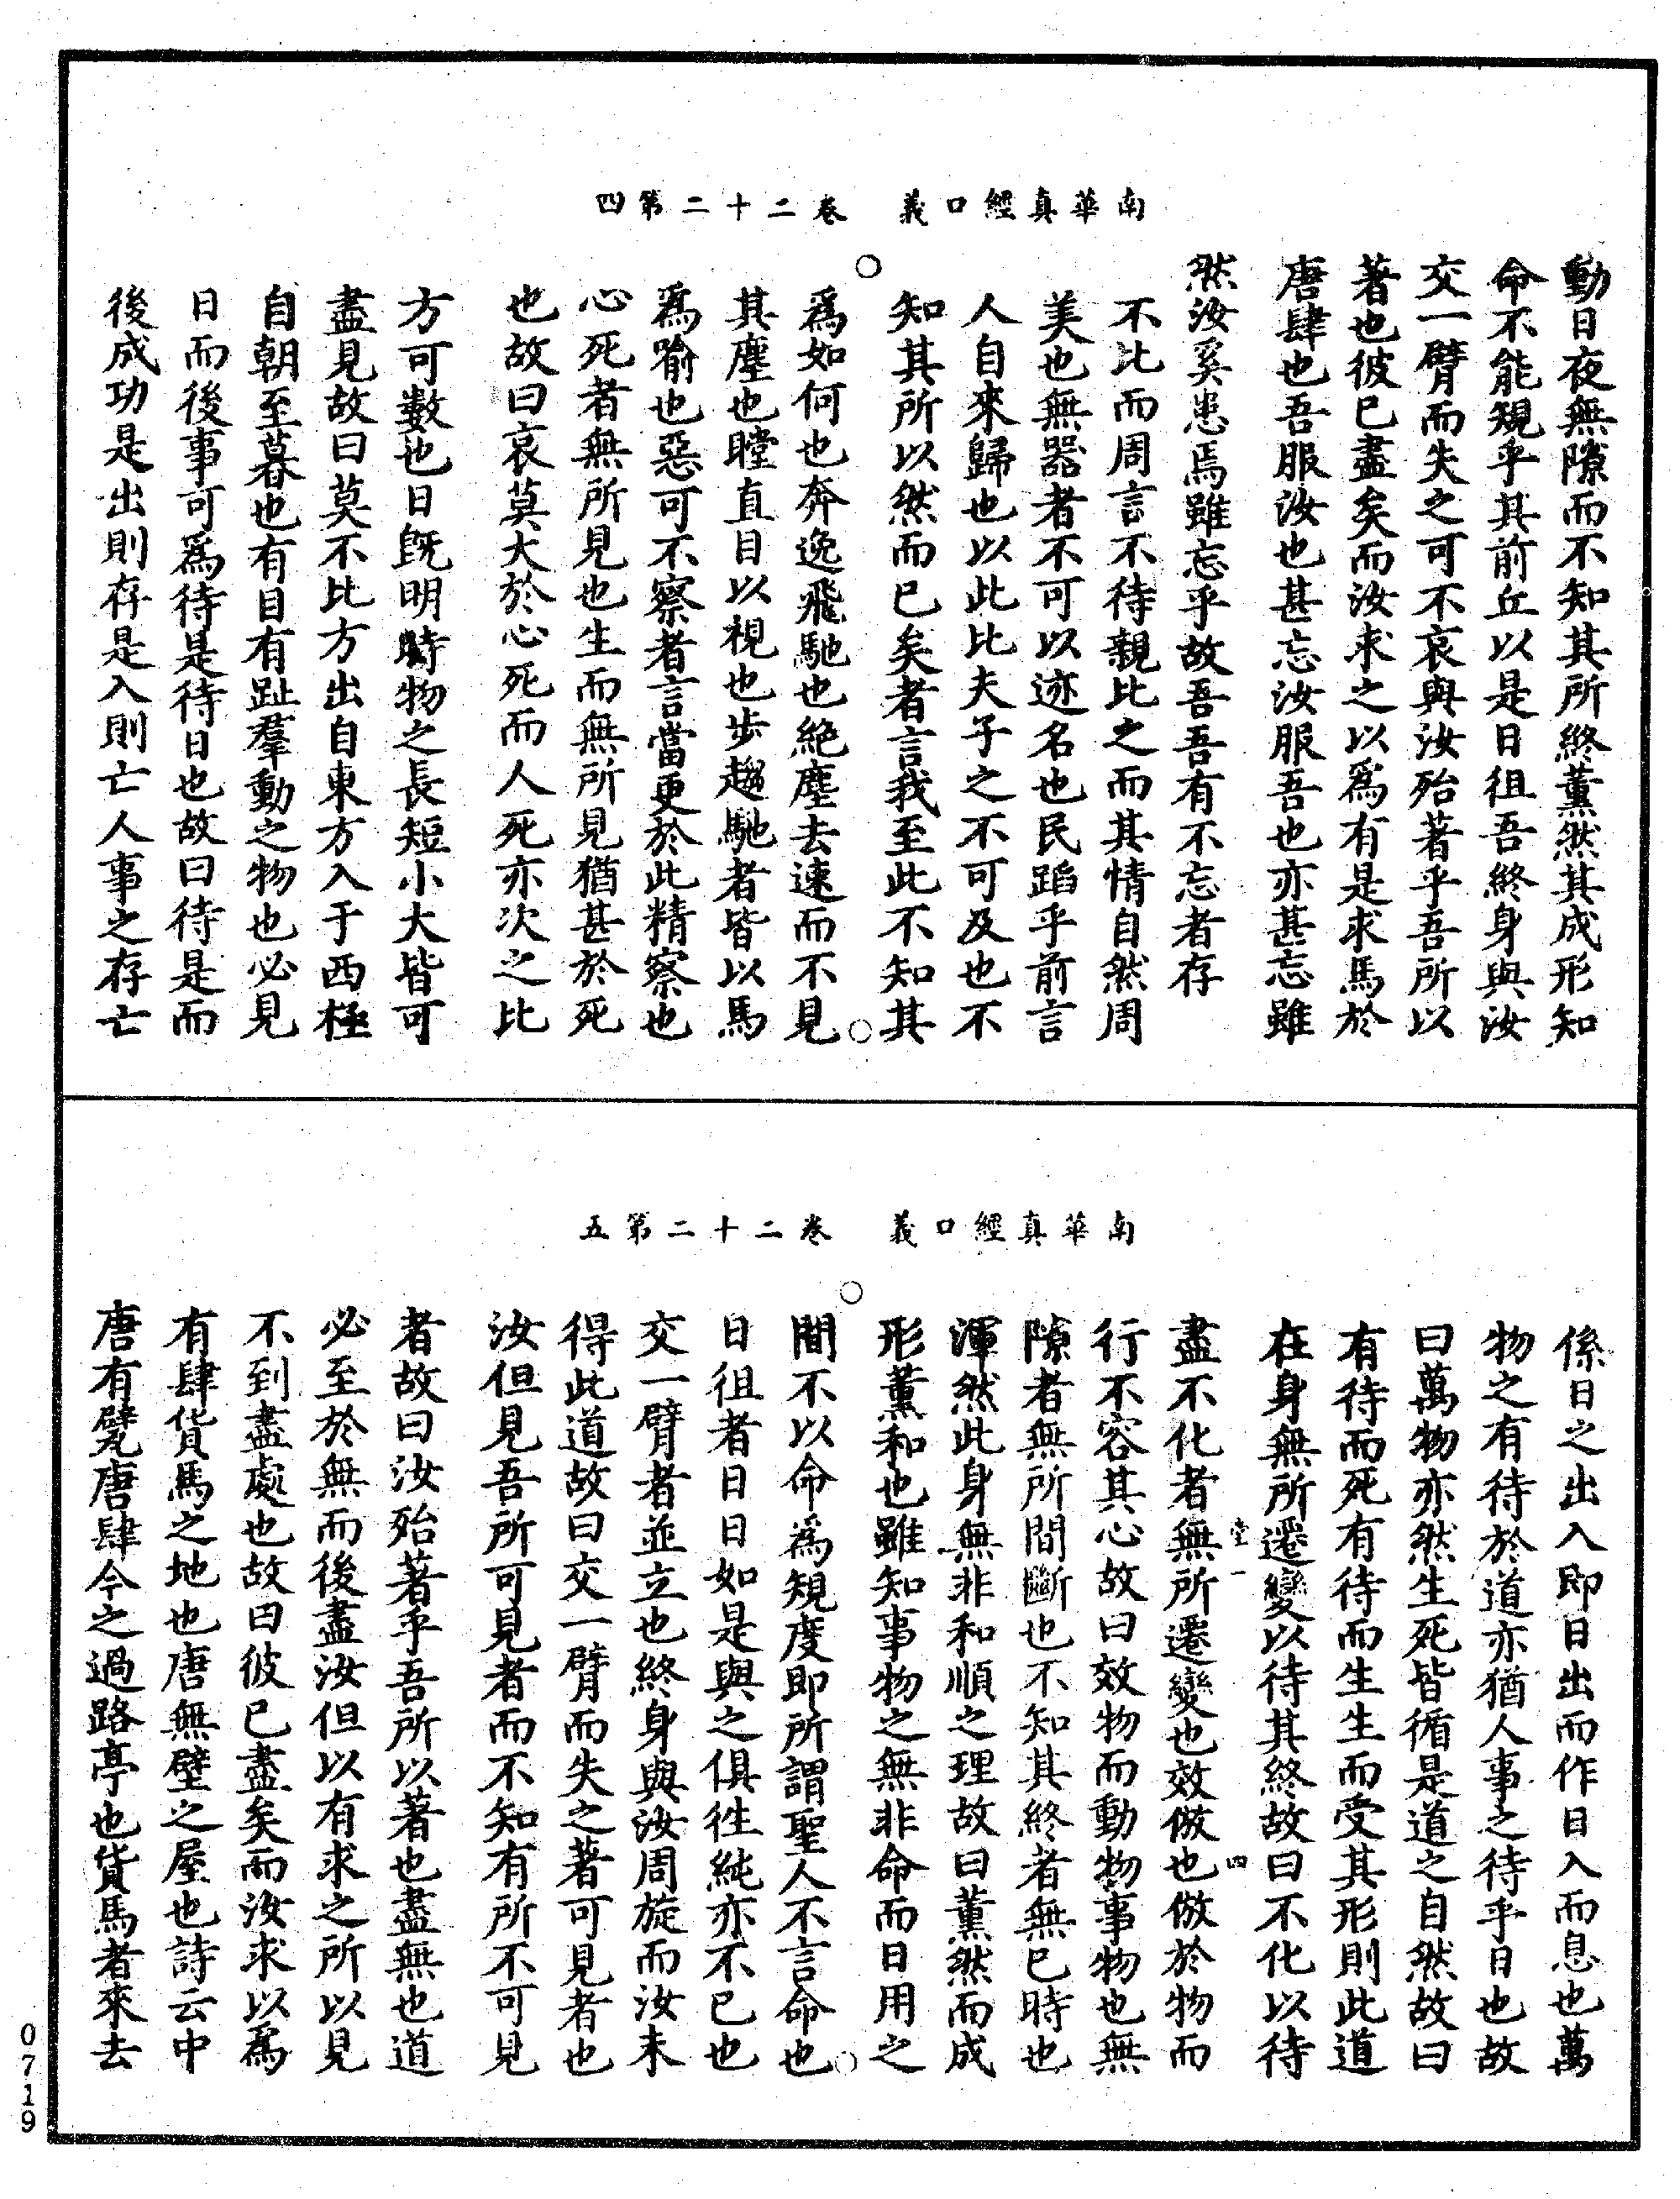 南華真經口義　卷二十二第四
動日夜無隙而不知其所終薰然其成形知
命不能規乎其前丘以是日徂吾終身與汝
交一臂而失之可不哀與汝殆著乎吾所以
著也彼已盡矣而汝求之以為有是求馬於
唐肆也吾服汝也甚忘汝服吾也亦甚忘雖
然汝奚患焉雖忘乎故吾吾有不忘者存
不比而周言不待親比之而其情自然周
美也無器者不可以迹名也民蹈乎前言
人自來歸也以此比夫子之不可及也不
知其所以然而已矣者言我至此不知其
為如何也奔逸飛馳也絕塵去速而不見
其塵也瞠直目以視也步趨馳者皆以馬
為喻也惡可不察者言當更於此精察也
心死者無所見也生而無所見猶甚於死
也故曰哀莫大於心死而人死亦次之比
方可數也日既明時物之長短小大皆可
盡見故曰莫不比方出自東方入于西極
自朝至暮也有目有趾羣動之物也必見
日而後事可為待是待日也故曰待是而
後成功是出則存是入則亡人事之存亡
南華真經口義　卷二十二第五
係日之出入即日出而作日入而息也萬
物之有待於道亦猶人事之待乎日也故
曰萬物亦然生死皆循是道之自然故曰
有待而死有待而生生而受其形則此道
在身無所遷變以待其終故曰不化以待
盡不化者無所遷變也效倣也倣於物而
行不容其心故曰效物而動物事物也無
隙者無所間斷也不知其終者無已時也
渾然此身無非和順之理故曰薰然而成
形薰和也雖知事物之無非命而日用之
間不以命為規度即所謂聖人不言命也
日徂者日日如是與之俱往純亦不已也
交一臂者並立也終身與汝周旋而汝未
得此道故曰交一臂而失之著可見者也
汝但見吾所可見者而不知有所不可見
者故曰汝殆著乎吾所以著也盡無也道
必至於無而後盡汝但以有求之所以見
不到盡處也故曰彼已盡矣而汝求以為
有肆貨馬之地也唐無壁之屋也詩云中
唐有甓唐肆今之過路亭也貨馬者來去
0719